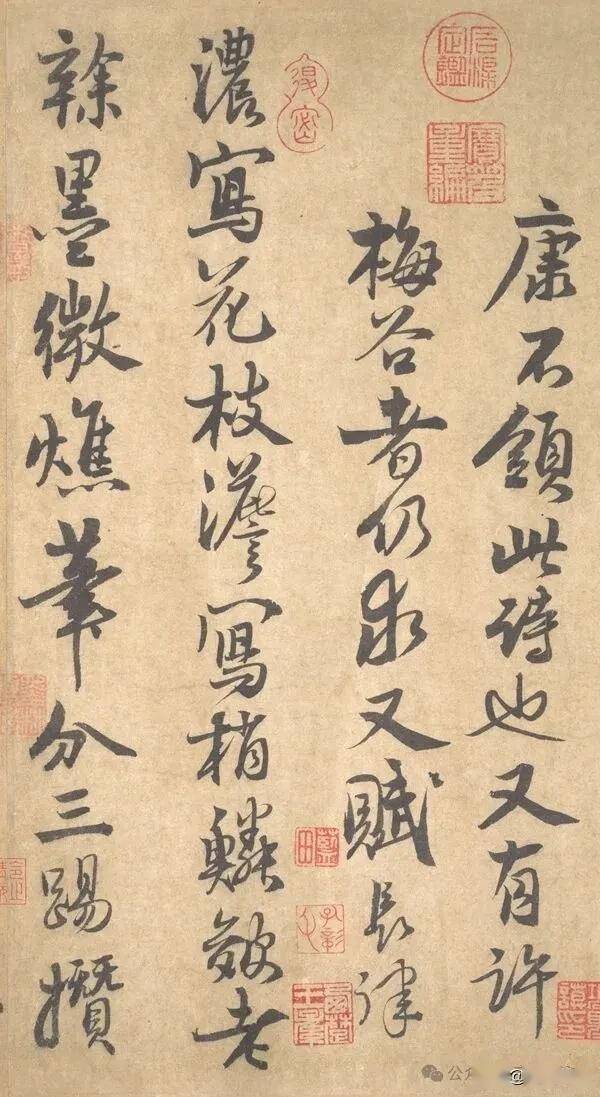 康不領此詩也又有許
梅谷者仍求又賦長律
濃寫花枝澹寫梢鱗皴老
榦墨微燋筆分三踢攢